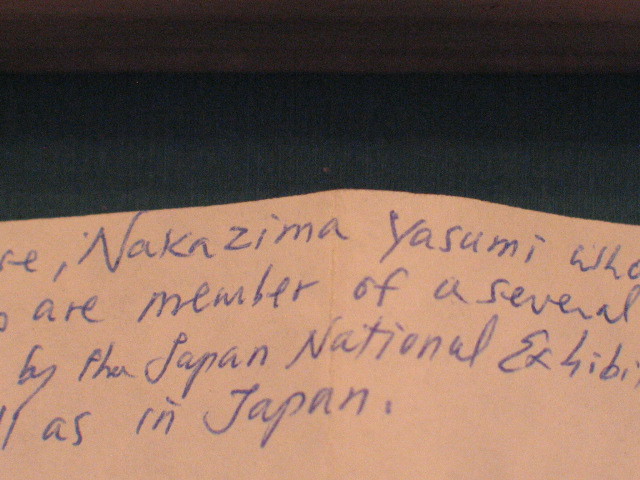 se, Nakazima Yasumi who
are member of a several
by the Japan National Exhibi
ll as in Japan.